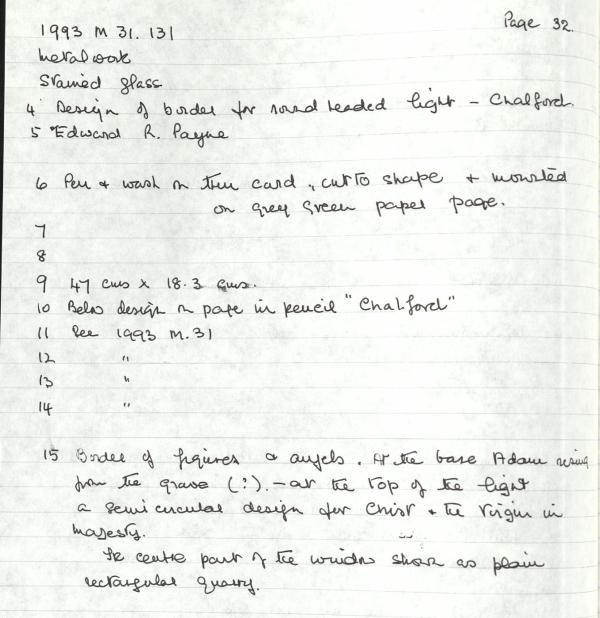 Page 32.
1993 M 31. 131
Metalwork
Stained glass
4 Design of border for round headed light - Chalford.
5 Edward R. Payne
6 Pen & wash on thin card, cut to shape & mounted
on grey green paper page.
7
8
9 47 cms x 18.3 cms.
10 Below design on page in pencil "Chalford"
11 See 1993 M.31
12 "
13 "
14 "
15 Border of figures & angels. At the base Adam rising
from the grave (?). - at the top of the light
a semi circular design for Christ & the Virgin in
majesty.
The centre part of the window shown as plain
rectangular quarry.